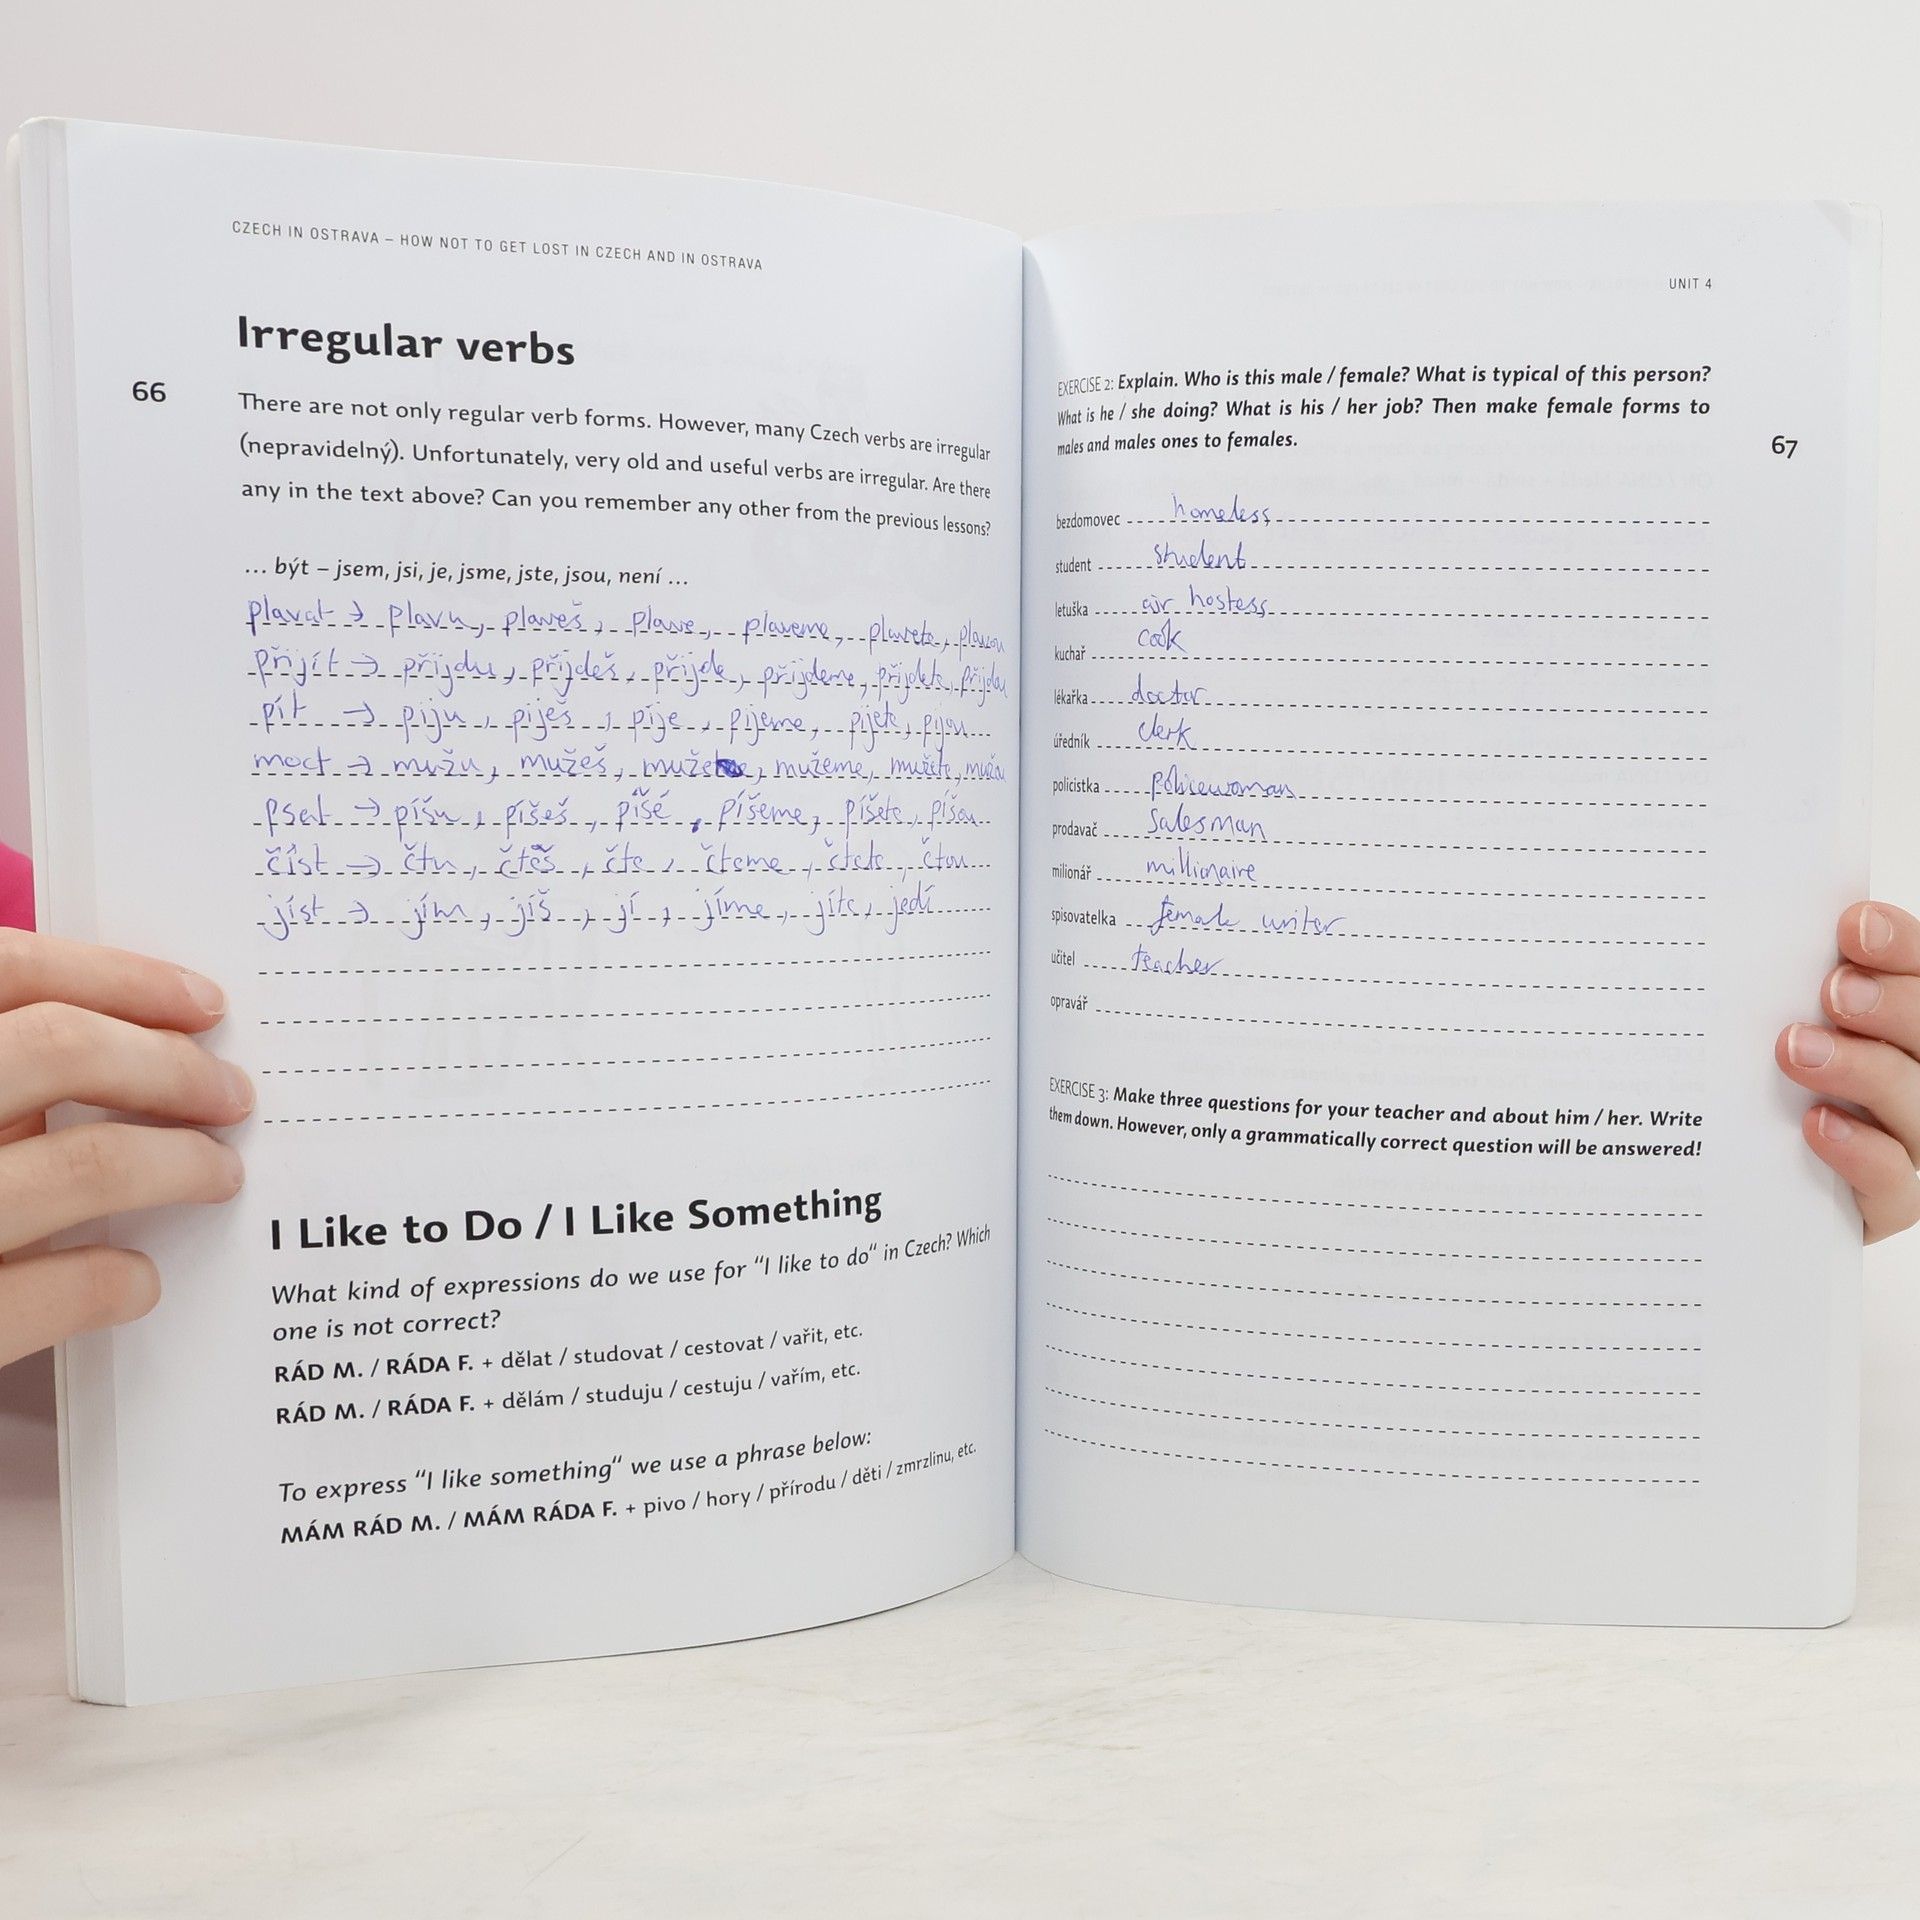 CZECH IN OSTRAVA – HOW NOT TO GET LOST IN CZECH AND IN OSTRAVA
Irregular verbs
66
There are not only regular verb forms. However, many Czech verbs are irregular
(nepravidelný). Unfortunately, very old and useful verbs are irregular. Are there
any in the text above? Can you remember any other from the previous lessons?
... být – jsem, jsi, je, jsme, jste, jsou, není ...
plavat → plavu, plaveš, plave, plaveme, plavete, plavou
přijít → přijdu, přijdeš, přijde, přijdeme, přijdete, přijdou
pít → piju, piješ, píje, pijeme, pijete, pijou
moct → mužu, mužeš, muže, mužeme, mužete, mužou
psat → píšu, píšeš, píšé, píšeme, píšete, píšou
číst → čtu, čteš, čte, čteme, čtete, čtou
jíst → jím, jíš, jí, jíme, jíte, jedí
I Like to Do / I Like Something
What kind of expressions do we use for "I like to do" in Czech? Which
one is not correct?
RÁD M. / RÁDA F. + dělat / studovat / cestovat / vařit, etc.
RÁD M. / RÁDA F. + dělám / studuju / cestuju / vařím, etc.
To express "I like something" we use a phrase below:
MÁM RÁD M. / MÁM RÁDA F. + pivo / hory / přírodu / děti / zmrzlinu, etc.
UNIT 4
EXERCISE 2: Explain. Who is this male / female? What is typical of this person?
What is he / she doing? What is his / her job? Then make female forms to
males and males ones to females.
67
bezdomovec homeless
student student
letuška air hostess
kuchař cook
lékařka doctor
úředník clerk
policistka policewoman
prodavač salesman
milionář millionaire
spisovatelka female writer
učitel teacher
opravář
EXERCISE 3: Make three questions for your teacher and about him / her. Write
them down. However, only a grammatically correct question will be answered!